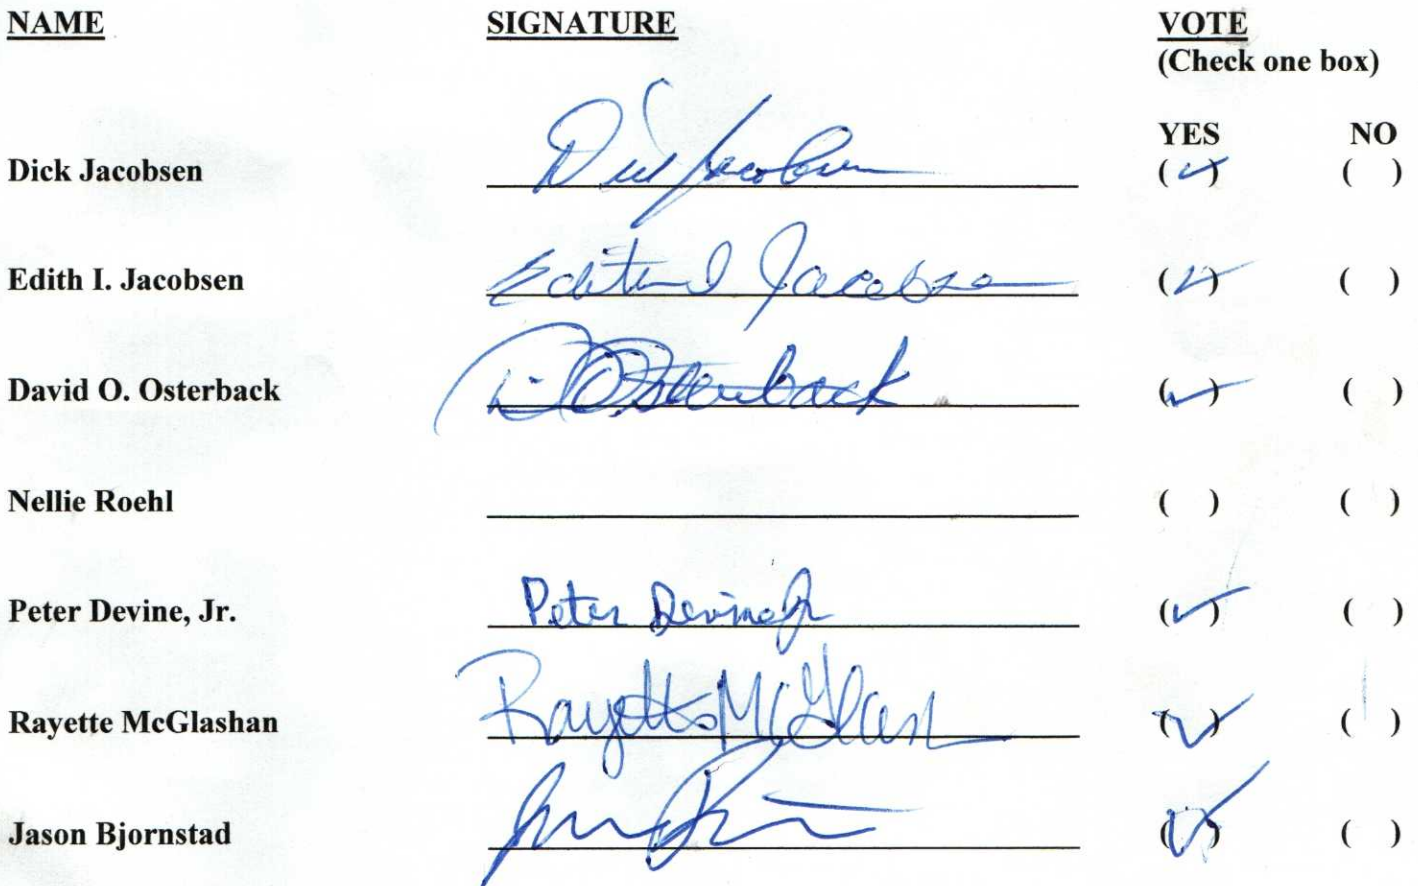 NAME SIGNATURE VOTE
(Check one box)
YES NO
Dick Jacobsen Dick Jacobsen (✓) ( )
Edith I. Jacobsen Edith I Jacobsen (✓) ( )
David O. Osterback D. O. Osterback (✓) ( )
Nellie Roehl ( ) ( )
Peter Devine, Jr. Peter Devine Jr (✓) ( )
Rayette McGlashan Rayette McGlash (✓) ( )
Jason Bjornstad (✓) ( )